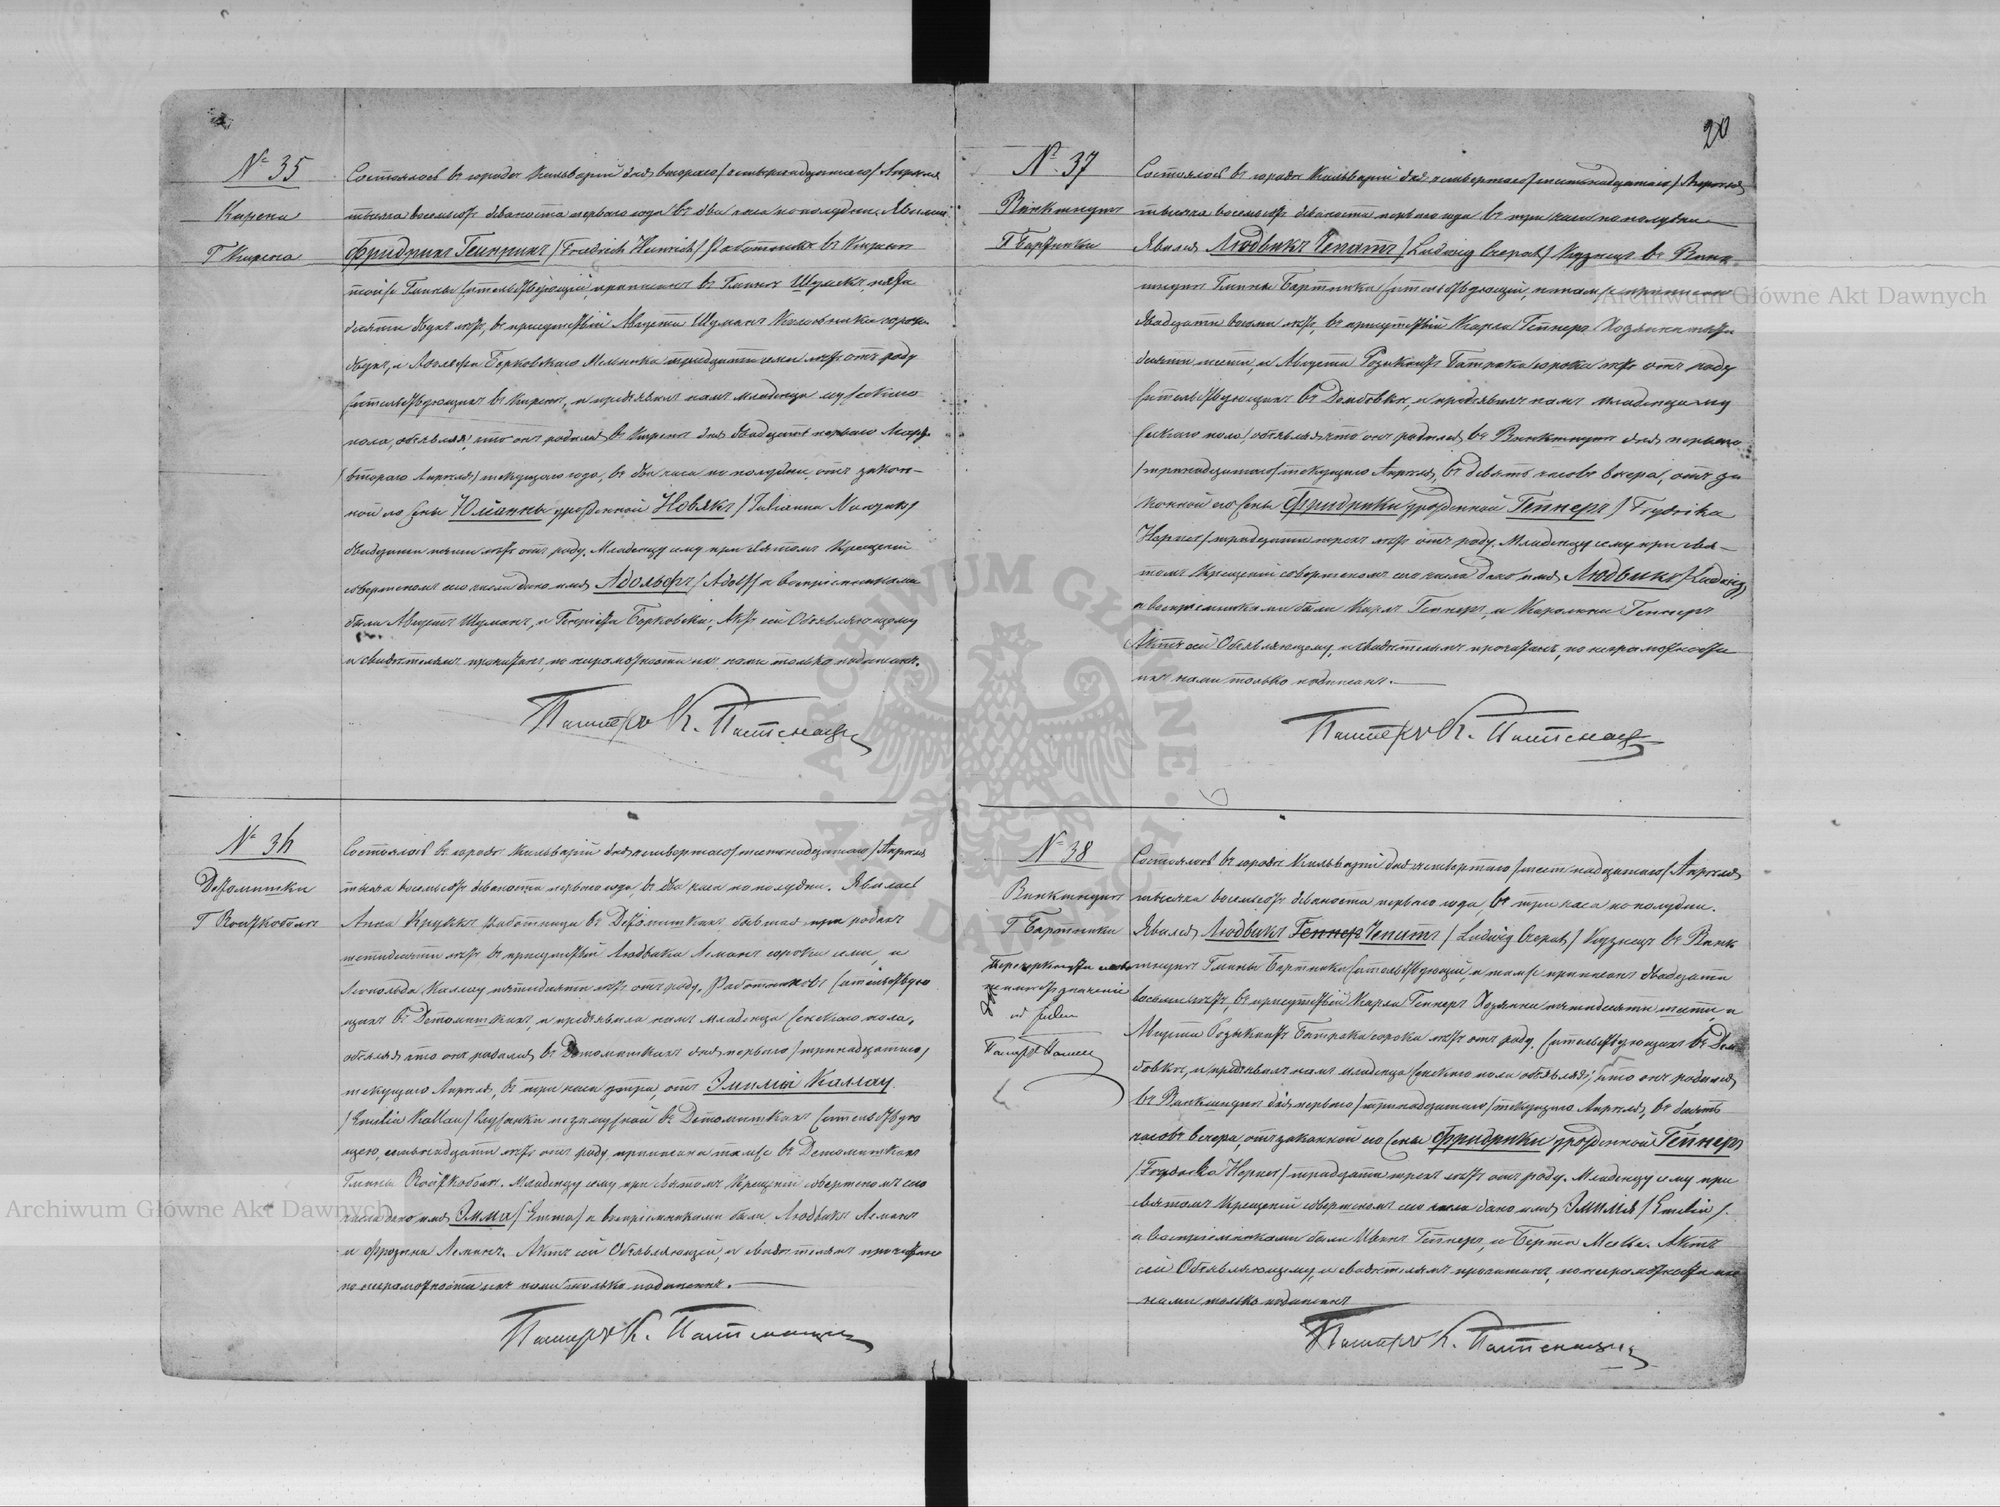 20
№ 35
Кирени
Г Кирена
Состоялось въ городѣ Кальваріи дня втораго/четырнадцатаго/Апрѣля
тысяча восемьсотъ девяноста перваго года въ два часа пополудни. Явился
Фридрихъ Гейнрихъ /Friedrich Heinrich/ работникъ въ Киренѣ
тойже Гмины жительствующій, приписанъ въ Гминѣ
двухъ лѣтъ, въ присутствіи Августа Шумана
двухъ, и Адольфа Борковскаго Мельника тридцати семи лѣтъ отъ роду
жительствующихъ въ Киренѣ, и предъявилъ намъ младенца мужескаго
пола, объявляя, что онъ родился въ Киренѣ дня двадцать перваго Марта
/втораго Апрѣля/ текущаго года, въ два часа по полудни, отъ закон-
ной его жены Юліанны урожденной Новякъ /Julianna Nowak/
двадцати пяти лѣтъ отъ роду. Младенцу сему при Святомъ Крещеніи
совершеномъ сего числа дано имя Адольфъ /Adolf/ а воспріемниками
были Августъ Шуманъ, и Генріета Борковски, Актъ сей Объявляющему
и свидѣтелямъ прочитанъ, по неграмотности ихъ нами только подписанъ.
Пасторъ К.
№ 36
Детомишки
Состоялось въ городѣ Кальваріи дня четвертаго/шестнадцатаго/Апрѣля
тысяча восемьсотъ девяноста перваго года, въ два часа по полудни. Явилась
Анна Круккъ работница въ Детомишкахъ бывшая при родахъ
шестидесяти лѣтъ въ присутствіи Людвика Леманъ сорока семи, и
Леопольда Каллау пятидесяти лѣтъ отъ роду, Работниковъ жительствую
щихъ въ Детомишкахъ, и предъявила намъ младенца женскаго пола,
объявляя что онъ родился въ Детомишкахъ дня перваго/тринадцатаго/
текущаго Апрѣля, въ три часа утра, отъ Эмиліи Каллау
/Emilia Kallau/ служанки незамужной въ Детомишкахъ жительствую
щею, семнадцати лѣтъ отъ роду, приписана тамже въ Детомишкахъ
Гмины. Младенцу сему при святомъ Крещеніи совершеномъ сего
числа дано имя Эмма /Emma/ а воспріемниками были Людвикъ Леманъ
и Леманъ. Актъ сей Объявляющей, и свидѣтелямъ прочитанъ
по неграмотности ихъ нами только подписанъ.
Пасторъ К.
№ 37
Винкшнупъ
Г Бартники
Состоялось въ городѣ Кальваріи дня четвертаго/шестнадцатаго/Апрѣля
тысяча восемьсотъ девяноста перваго года въ три часа пополудни
Явился Людвикъ Чепатъ /Ludwig Czepat/ Кузнецъ въ Винк
шнупъ Гмины Бартники жительствующій, и тамже приписанъ
двадцати восьми лѣтъ, въ присутствіи Карла Геппнеръ Хозяина пяти
десяти шести, и Августа Батрака сорока лѣтъ отъ роду
жительствующихъ въ Дембовкѣ, и предъявилъ намъ младенца му
жескаго пола, объявляя что онъ родился въ Винкшнупъ дня перваго
/тринадцатаго/ текущаго Апрѣля, въ девять часовъ вечера, отъ за
конной его жены Фридрики урожденной Геппнеръ /Frydrika
Hepner/ тридцати трехъ лѣтъ отъ роду. Младенцу сему при свя-
томъ Крещеніи совершеномъ сего числа дано имя Людвикъ /Ludwig/
а воспріемниками были Карлъ Геппнеръ, и Каролина Геппнеръ
Актъ сей Объявляющему, и свидѣтелямъ прочитанъ, по неграмотности
ихъ нами только подписанъ.
Пасторъ К.
№ 38
Винкшнупъ
Г Бартники
Состоялось въ городѣ Кальваріи дня четвертаго/шестнадцатаго/Апрѣля
тысяча восемьсотъ девяноста перваго года, въ три часа пополудни.
Явился Людвикъ Геппнер Чепатъ /Ludwig Czepat/ Кузнецъ въ Винк
шнупъ Гмины Бартники жительствующій, и тамже приписанъ двадцати
восьми лѣтъ, въ присутствіи Карла Геппнеръ Хозяина пятидесяти шести, и
Августа Батрака сорока лѣтъ отъ роду. жительствующихъ въ Дем
бовкѣ, и предъявилъ намъ младенца женскаго пола объявляя, что онъ родился
въ Винкшнупъ дня перваго/тринадцатаго/текущаго Апрѣля, въ десять
часовъ вечера, отъ законной его жены Фридрики урожденной Геппнеръ
/Frydrika Hepner/ тридцати трехъ лѣтъ отъ роду. Младенцу сему при
святомъ Крещеніи совершеномъ сего числа дано имя Эмилія /Emilia/.
а воспріемниками были Иванъ Геппнеръ, и Берта. Актъ
сей Объявляющему, и свидѣтелямъ прочитанъ, по неграмотности ихъ
нами только подписанъ
Пасторъ К.
Archiwum Główne Akt Dawnych
Archiwum Główne Akt Dawnych
ARCHIWUM GŁÓWNE AKT DAWNYCH